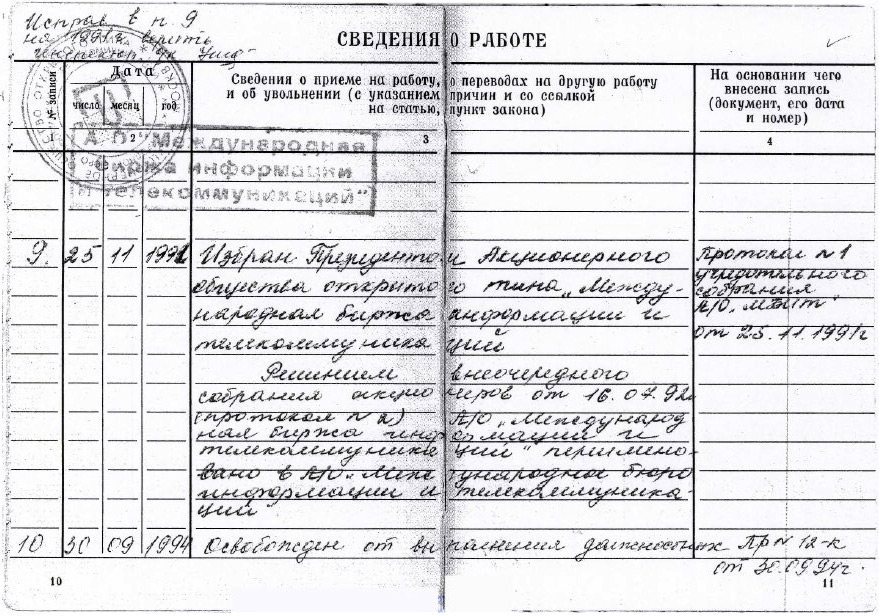 Исправ. в п. 9
на 1991г. верить
СВЕДЕНИЯ О РАБОТЕ
№ записи
Дата
число месяц год
Сведения о приеме на работу, о переводах на другую работу
и об увольнении (с указанием причин и со ссылкой
на статью, пункт закона)
На основании чего
внесена запись
(документ, его дата
и номер)
1 2 3 4
А/О "Международная
биржа информации
и телекоммуникаций"
9. 25 11 1991 Избран Президентом Акционерного
общества открытого типа „Между-
народная биржа информации и
телекоммуникаций
Протокол №1
учредительного
собрания
А/О „МБИТ"
от 25.11.1991г
Решением внеочередного
собрания акционеров от 16.07.92
(протокол №2) А/О „Международ
ная биржа информации и
телекоммуникаций" переимено-
вано в А/О „Международное бюро
информации и телекоммуника-
ций"
10 30 09 1994 Освобожден от выполнения должностных Пр № 12-к
от 30.09.94г.
10
11